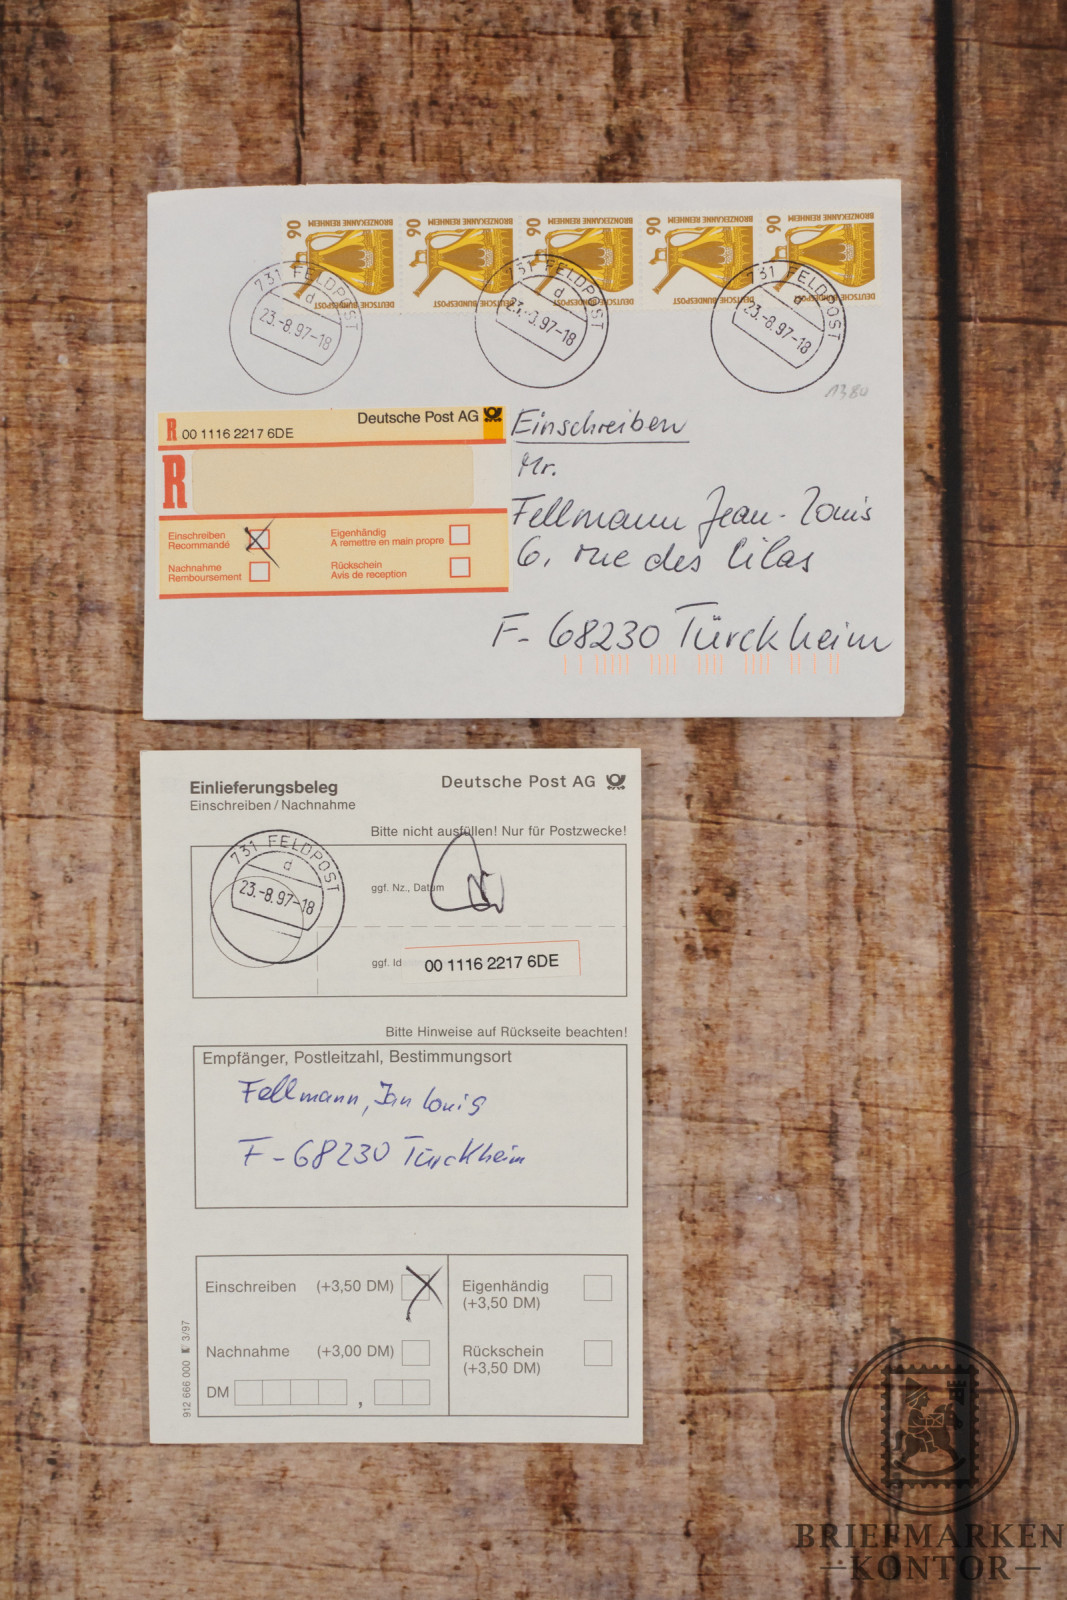 90 90 90 90 90
BRONZEKANNE REINHEIM BRONZEKANNE REINHEIM BRONZEKANNE REINHEIM BRONZEKANNE REINHEIM BRONZEKANNE REINHEIM
DEUTSCHE BUNDESPOST DEUTSCHE BUNDESPOST DEUTSCHE BUNDESPOST DEUTSCHE BUNDESPOST DEUTSCHE BUNDESPOST
731 FELDPOST
d
23.-8.97-18
731 FELDPOST
d
23.-8.97-18
731 FELDPOST
d
23.-8.97-18
1380
Deutsche Post AG
R 00 1116 2217 6DE
R
Einschreiben
Recommandé
Eigenhändig
A remettre en main propre
Nachnahme
Remboursement
Rückschein
Avis de reception
Einschreiben
Mr.
Fellmann Jean-Louis
6, rue des Lilas
F-68230 Türckheim
Einlieferungsbeleg
Einschreiben / Nachnahme
Deutsche Post AG
Bitte nicht ausfüllen! Nur für Postzwecke!
731 FELDPOST
d
23.-8.97-18
ggf. Nz., Datum
ggf. Id 00 1116 2217 6DE
Bitte Hinweise auf Rückseite beachten!
Empfänger, Postleitzahl, Bestimmungsort
Fellmann, Jan Louis
F-68230 Türckheim
Einschreiben (+3,50 DM)
Eigenhändig
(+3,50 DM)
Nachnahme (+3,00 DM)
Rückschein
(+3,50 DM)
DM ,
912 666 000 3/97
BRIEFMARKEN
KONTOR